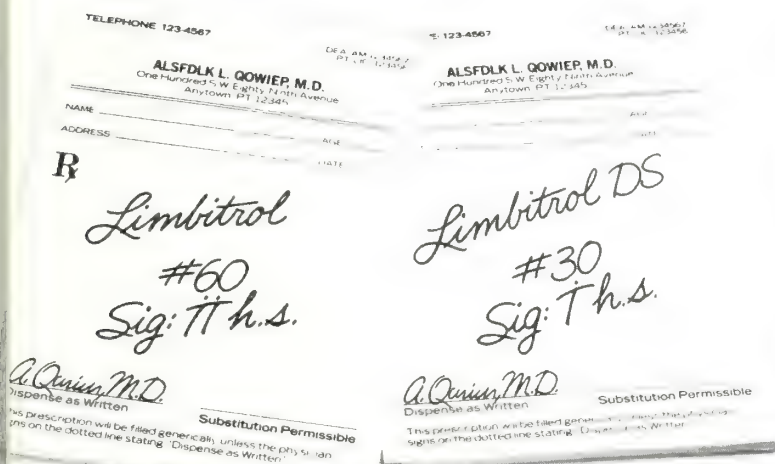 TELEPHONE 123-4567
ALSFDLK L. QOWIEP, M.D.
One Hundred S.W. Eighty Ninth Avenue
Anytown PT 12345
NAME
AGE
ADDRESS
DATE
Rx
Limbitrol
#60
Sig: ii h.s.
A. Qurius, M.D.
Dispense as Written
Substitution Permissible
This prescription will be filled generically unless the physician
signs on the dotted line stating "Dispense as Written"
E 123-4567
ALSFDLK L. QOWIEP, M.D.
One Hundred S.W. Eighty Ninth Avenue
Anytown PT 12345
Limbitrol DS
#30
Sig: i h.s.
A. Qurius, M.D.
Dispense as Written
Substitution Permissible
This prescription will be filled
signs on the dotted line stating